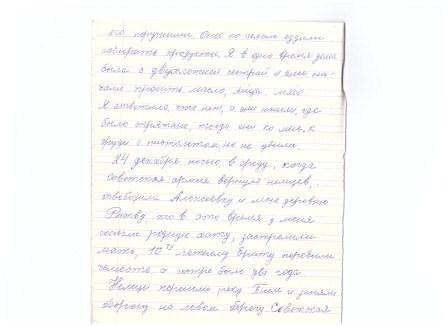 его окружении. Они по селам ездили
собирать продукты. Я в одно время дома
была с двухлетней сестрой и они на-
чали просить масло, яйца, мясо
Я ответила, что нет, а они нашли, где
было спрятано, тогда они ко мне, к
груди с пистолетом, но не убили.
24 декабря ночью в среду, когда
Советская армия вернула немцев,
освободила Алексеевку и мою деревню
что в это время у меня
родную хату, застрелили
мать, 10ти летнему брату перебили
челюсть, а сестре было два года
Немцы перешли реку Тим и заняли
оборону на левом берегу. Советская